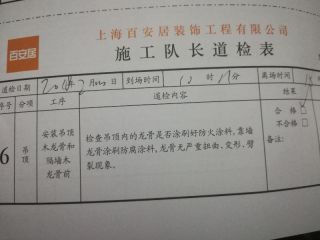 百安居
上海百安居装饰工程有限公司
施工队长道检表
道检日期 年 月 到场时间 时 分 离场时间
序号 分项 工序 道检内容 结果
6 吊顶 安装吊顶木龙骨和隔墙木龙骨前
检查吊顶内的龙骨是否涂刷好防火涂料,靠墙
龙骨涂刷防腐涂料,龙骨无严重扭曲、变形、劈
裂现象。
合格 □
不合格 □
备注: